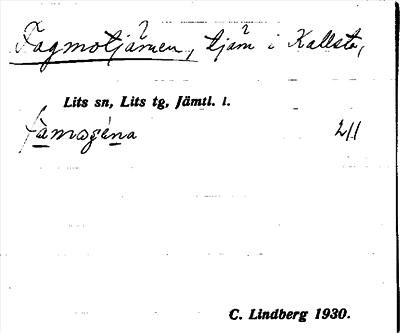 Fagmotjärnen, tjärn i Kallsta,
Lits sn, Lits tg, Jämtl. l.
211
C. Lindberg 1930.